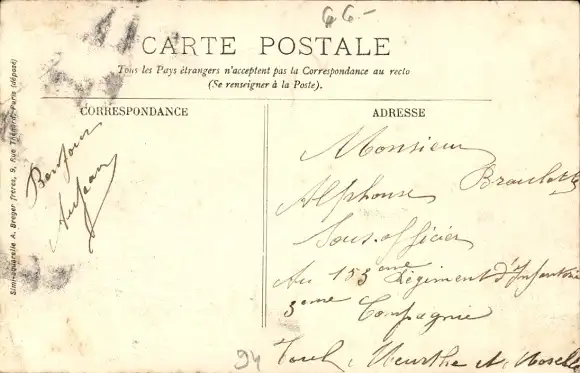 66-
CARTE POSTALE
Tous les Pays étrangers n'acceptent pas la Correspondance au recto
(Se renseigner à la Poste).
CORRESPONDANCE
Bonjour
ADRESSE
Monsieur
Alphonse
Sous-officier
Au 153eme Régiment d'Infanterie
3eme Compagnie
Toul, Meurthe et Moselle
94
Simili-aquarelle A. Breger frères, 9, rue Thénard, Paris (déposé)